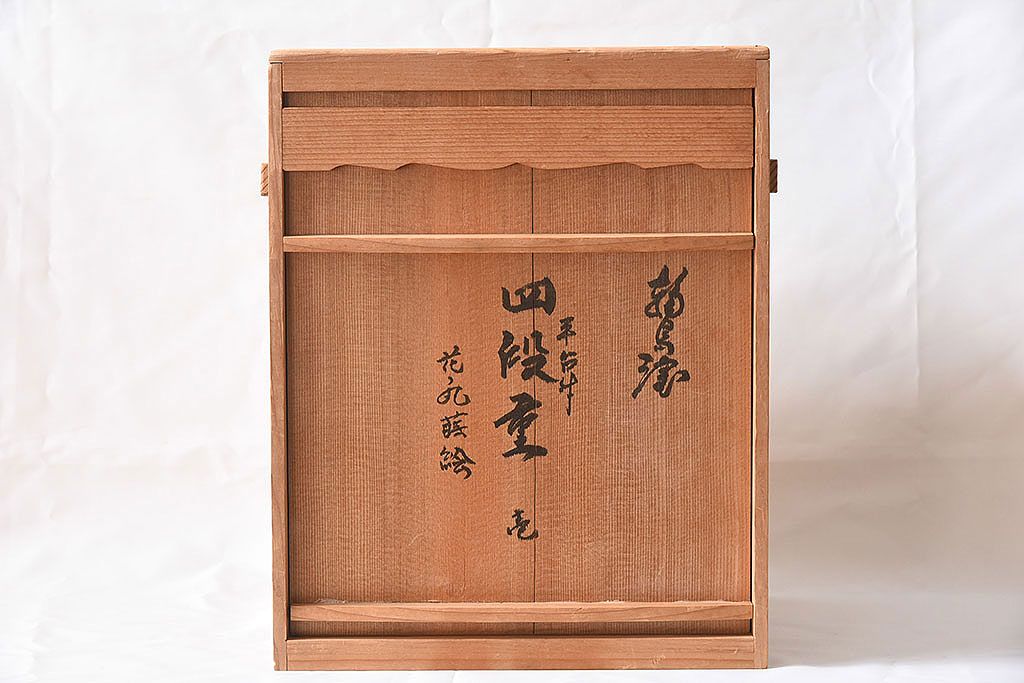 輪島塗
平台付
四段重 壱
花ノ丸蒔絵